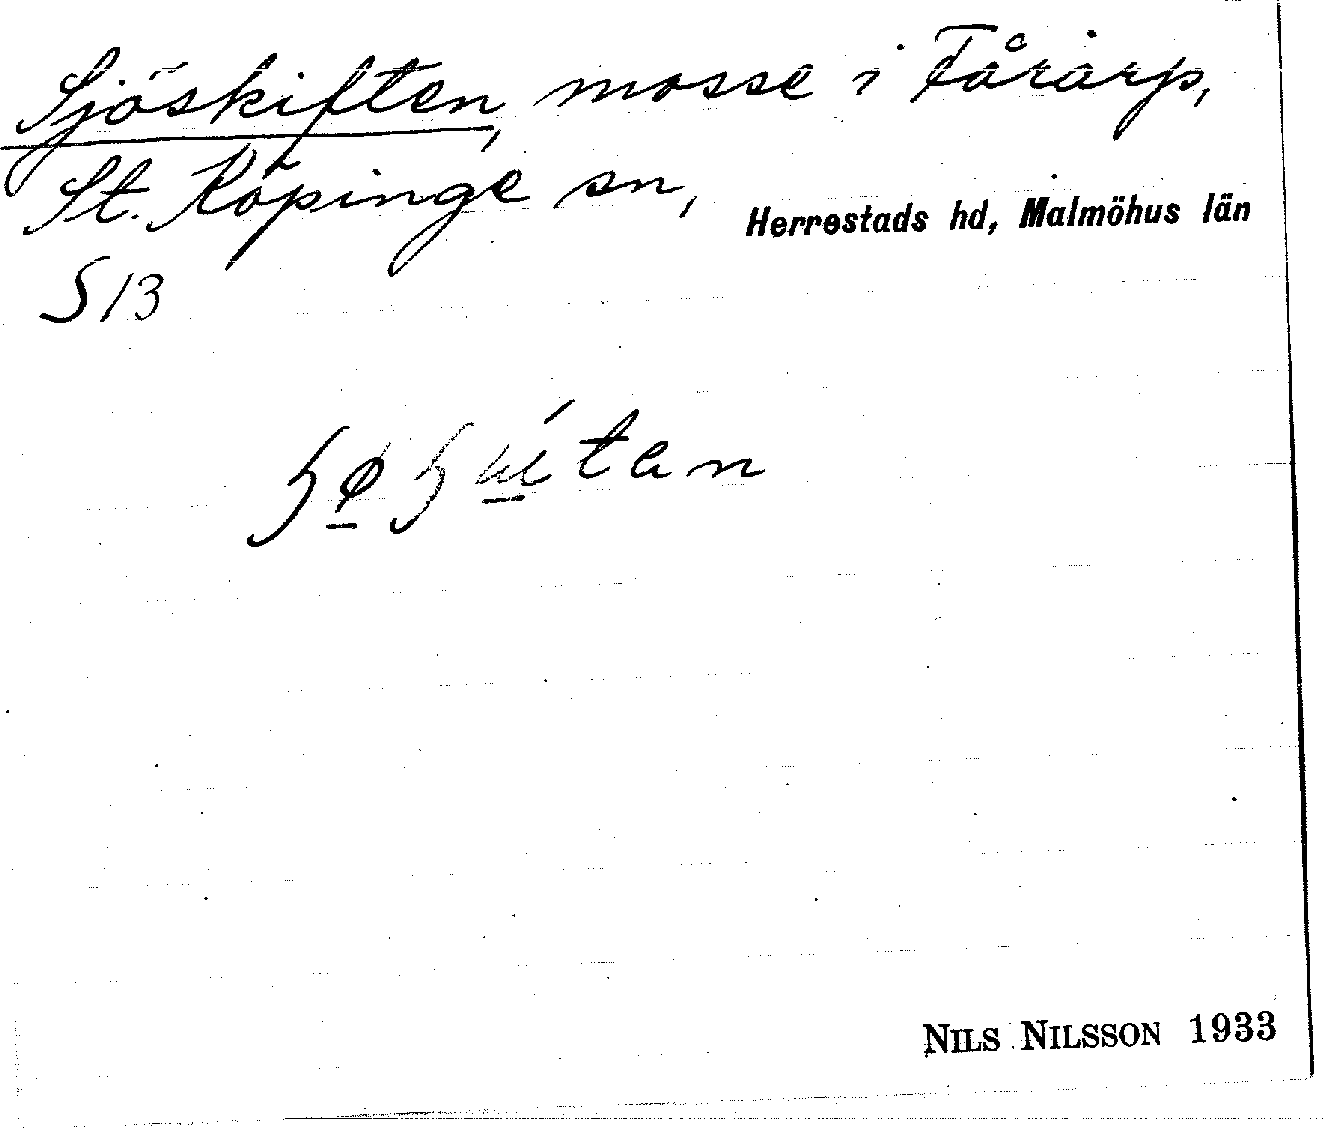 Sjöskiften, mosse i Fårarp,
St. Köpinge sn, Herrestads hd, Malmöhus län
S13
NILS NILSSON 1933